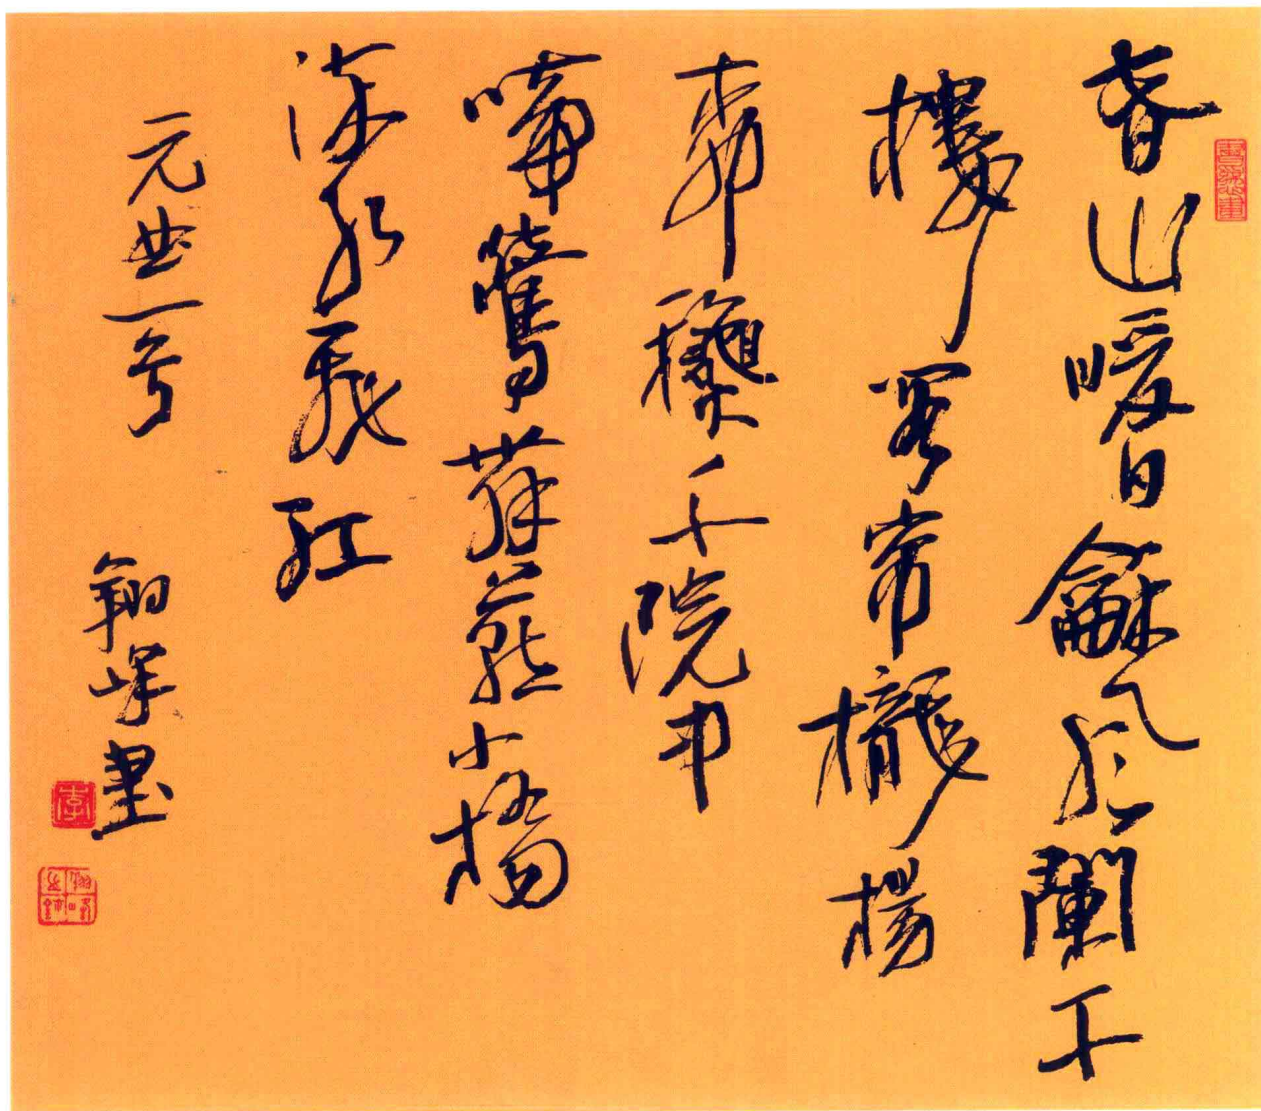 春山暖日龢風闌干
樓閣帘櫳楊
柳龝千院中
啼鶯舞燕小橋
流水飛紅
元曲一首
翔峰書
李